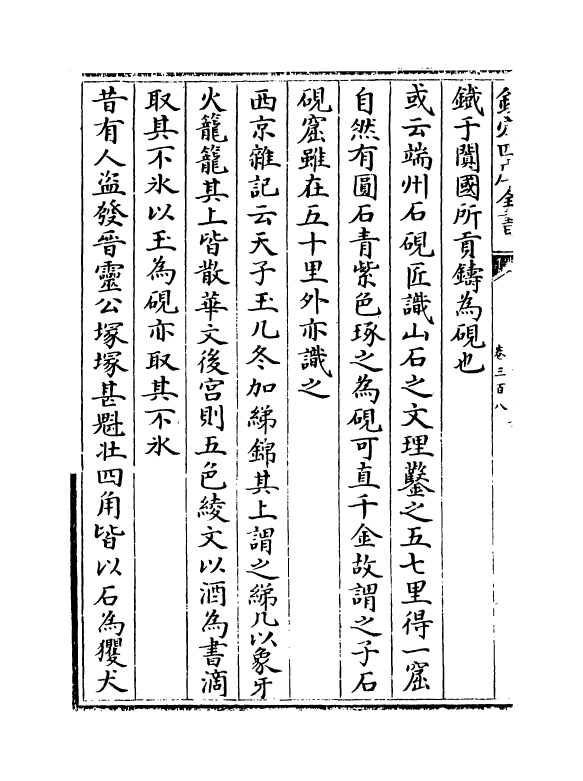 欽定四庫全書
卷三百八
鐵于闐國所貢鑄為硯也
或云端州石硯匠識山石之文理鑿之五七里得一窟
自然有圓石青紫色琢之為硯可直千金故謂之子石
硯窟雖在五十里外亦識之
西京雜記云天子玉几冬加綈錦其上謂之綈几以象牙
火籠籠其上皆散華文後宮則五色綾文以酒為書滴
取其不氷以玉為硯亦取其不氷
昔有人盗發晉靈公塚塚甚魁壯四角皆以石為玃犬